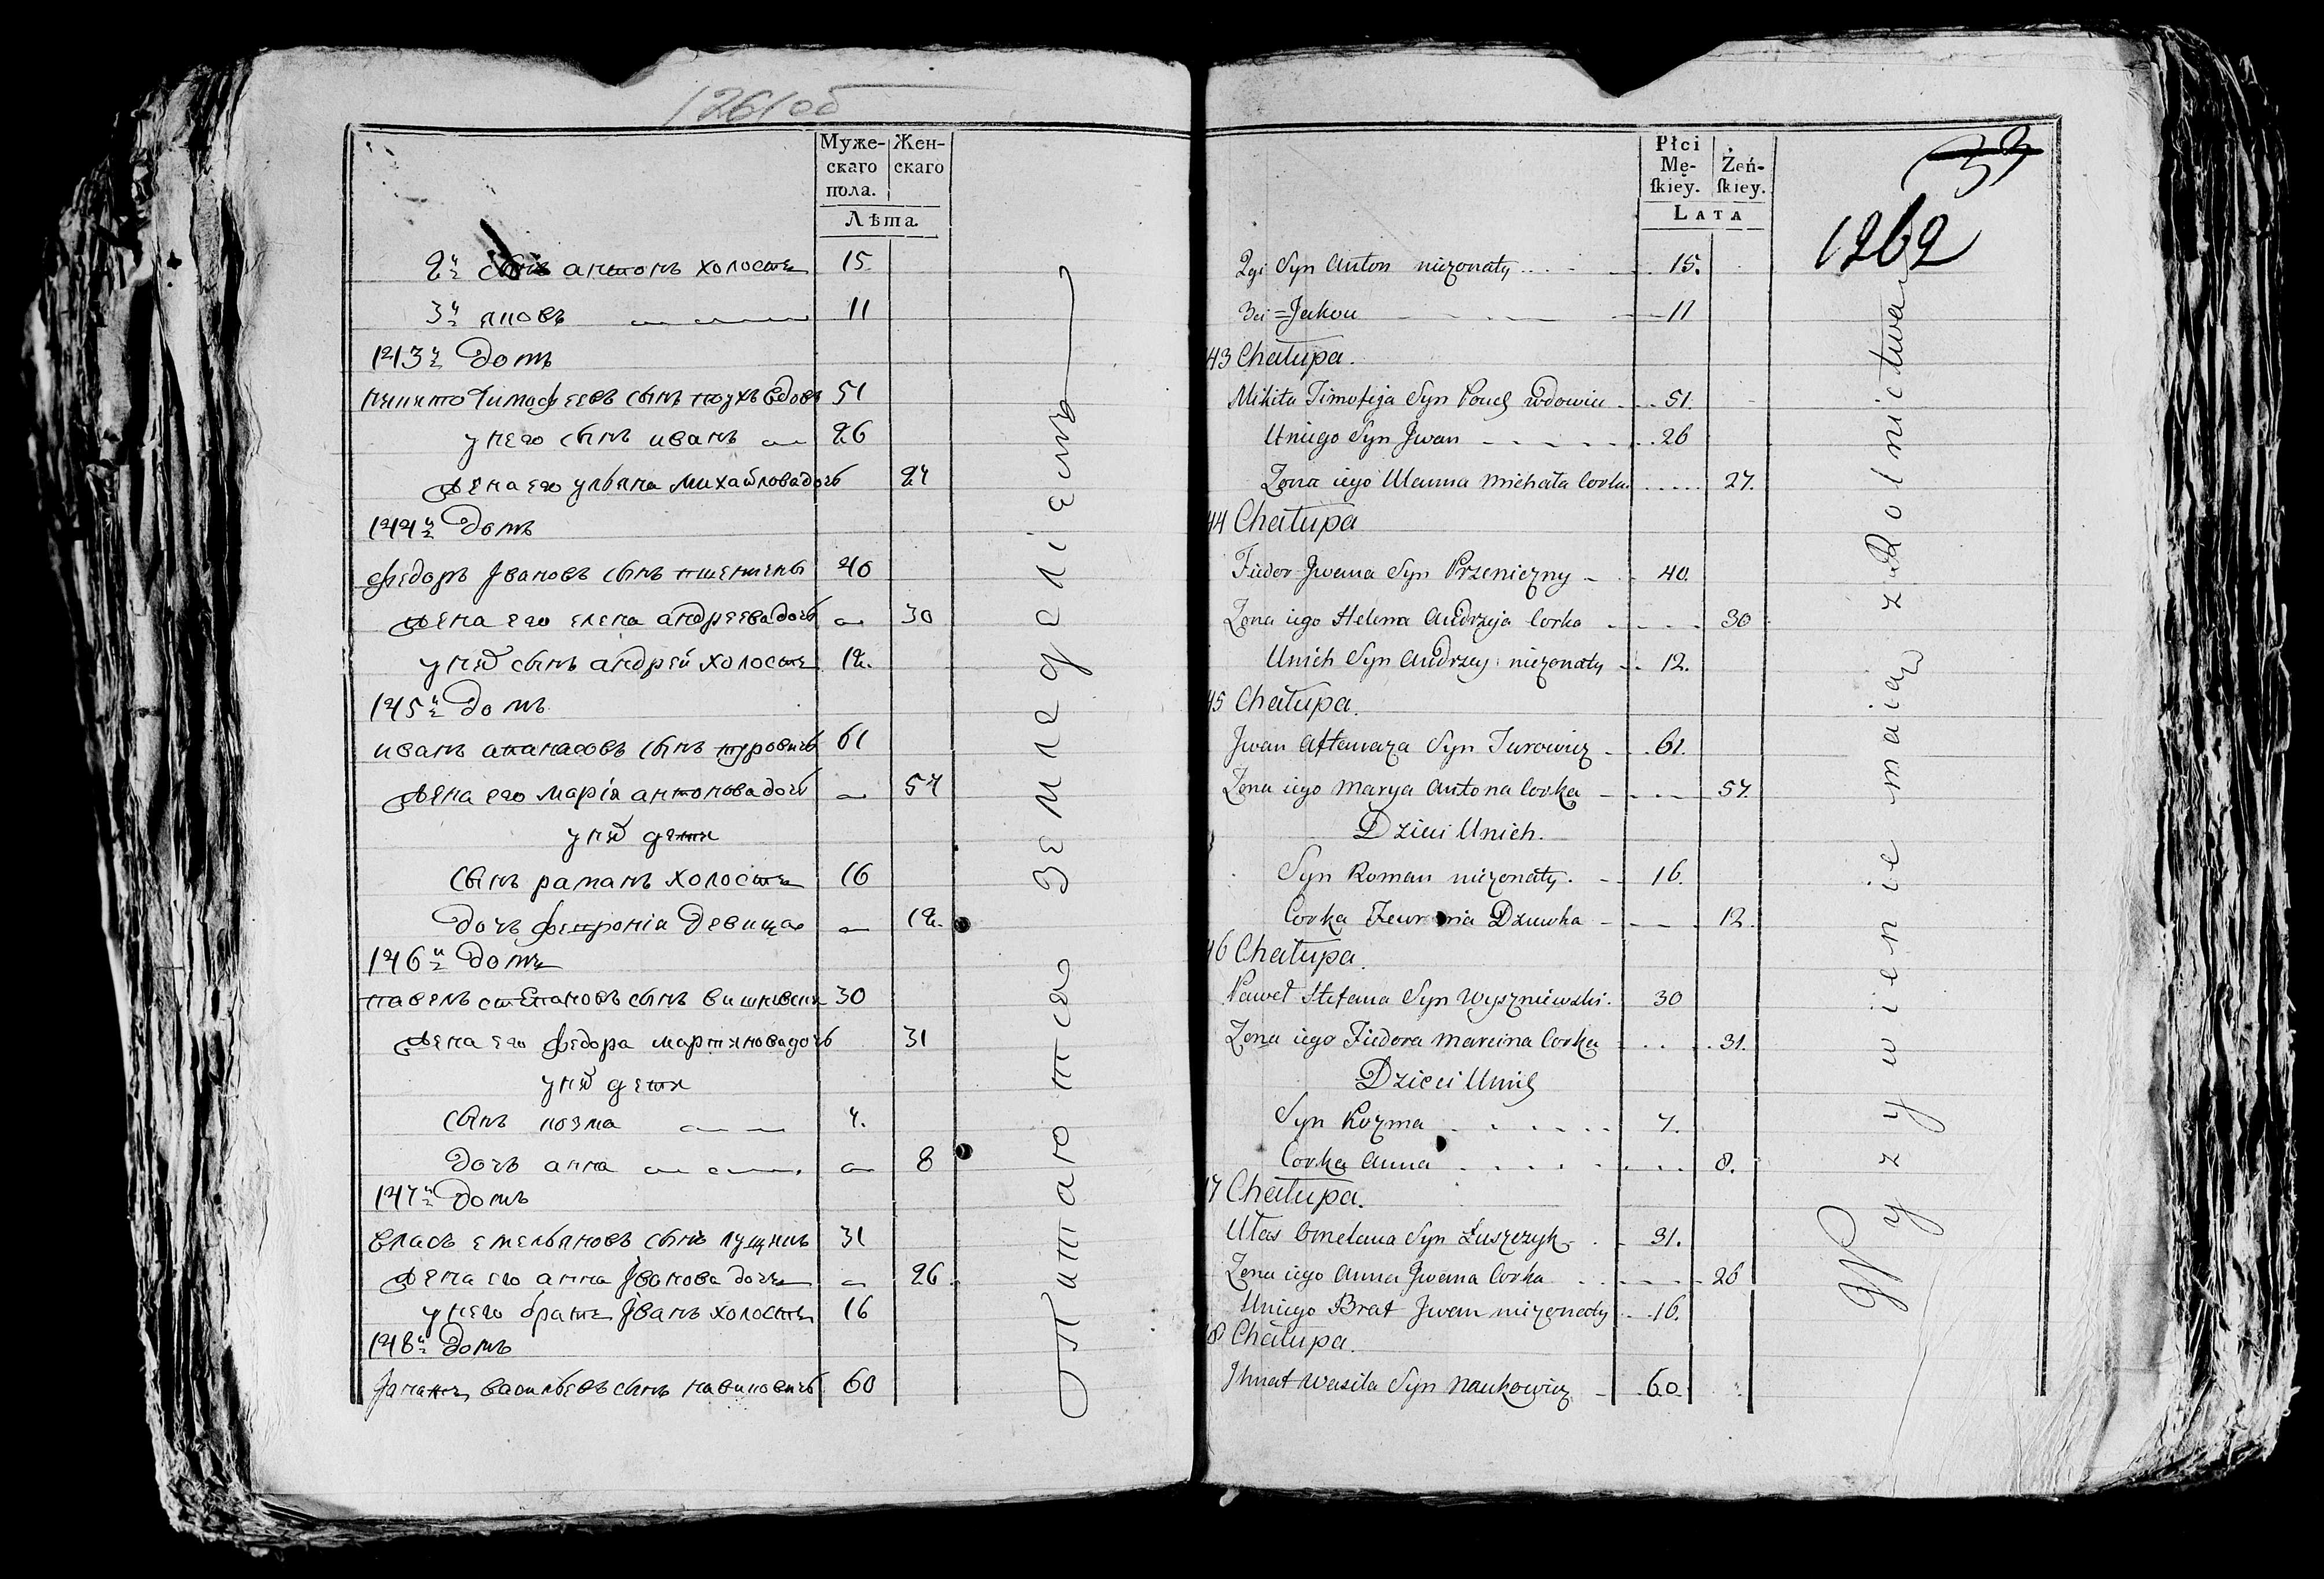 1261об
Муже-
скаго
пола.
Жен-
скаго
Лѣта.
2й сынъ антонъ холостъ 15
3й яковъ 11
143й Домъ
никита Тимофеевъ сынъ вдовъ 51
у него сынъ иванъ 26
жена его ульяна михайловадочь 27
144й Домъ
федоръ Ивановъ сынъ пшеничны 40
жена его елена андреевадочь 30
у ныхъ сынъ андрей холостъ 12.
145й Домъ
иванъ апанасовъ сынъ туровичь 61
жена его марія антоновадочь 57
у ныхъ дети
сынъ раманъ холостъ 16
дочь февронія Девица 12.
146й Домъ
павелъ степановъ сынъ вишневски 30
жена его федора мартиновадочь 31
у ныхъ дети
сынъ козма 7.
дочь анна 8
147й Домъ
власъ емельяновъ сынъ лущикъ 31
жена его анна Иванова дочь 26
у него братъ Иванъ холостъ 16
148й Домъ
Игнатъ васильевъ сынъ 60
Питаются земледеліемъ
Płci
Mę-
ſkiey.
Żeń-
ſkiey.
LATA
33
1262
2gi Syn Anton nieżonaty 15.
3ci = Jakou 11
43 Chałupa.
Mikita Timofieja Syn wdowiec 51.
Uniego Syn Jwan 26
Zona iego Ulanna Michała Corka 27.
44 Chałupa
Fiedor Jwana Syn Przeniczny 40.
Zona iego Helena Andrzeja Corka 30
Unich Syn Andrzey nieżonaty 12.
45 Chałupa.
Jwan Aftanaza Syn Turowicz 61.
Zona iego Marya Antona Corka 57.
Dzieci Unich.
Syn Roman nieżonaty. 16.
Corka Fewronia Dziewka 12.
46 Chałupa.
Paweł Stefana Syn Wyszniewski. 30
Zona iego Fiedora Marcina Corka 31.
Dzieci Unich
Syn Kozma 7.
Corka Anna 8.
47 Chałupa.
Ułas Omelana Syn Łuszczyk 31.
Zona iego Anna Jwana Corka 26
Uniego Brat Jwan nieżonaty 16.
8 Chałupa.
Jhnat Wasila Syn Naukowicz 60.
Wyzywienie maiąz Rolnictwa